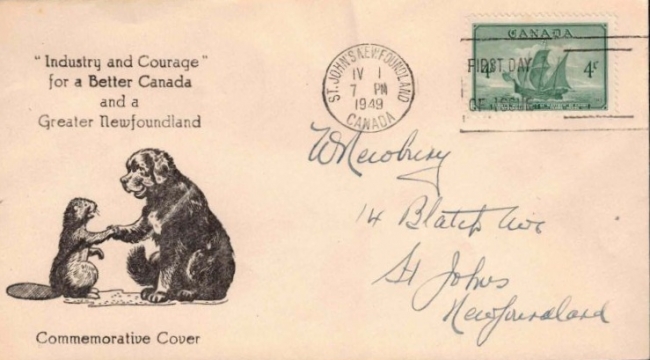 "Industry and Courage"
for a Better Canada
and a
Greater Newfoundland
Commemorative Cover
ST. JOHN'S NEWFOUNDLAND
IV 1
7 PM
1949
CANADA
CANADA
4 4¢
FIRST DAY
OF ISSUE
W Newbury
14 Blatch Ave
St Johns
Newfoundland